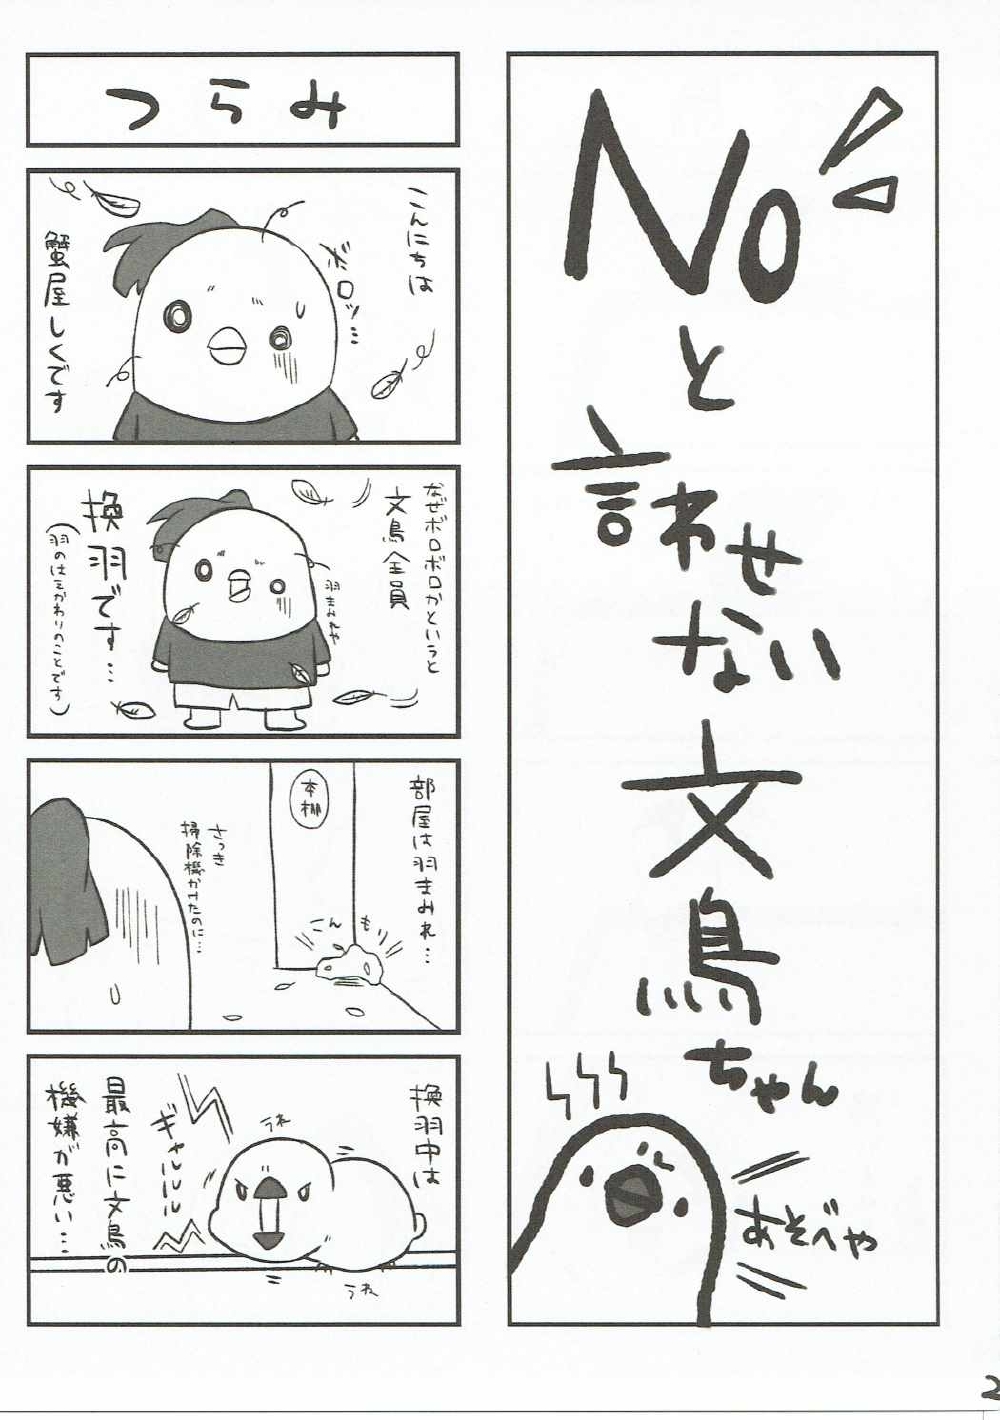 Noと
訴せない
文鳥
ちゃん
あそべや
つらみ
こんにちは
ボロッ…
蟹屋しくです
なぜボロボロかというと
文鳥全員
羽まみれや
換羽です…
(羽のはえかわりのことです)
部屋は羽まみれ…
本棚
こんもり
さっき
掃除機かけたのに…
換羽中は
うね
ギャルルルル
最高に文鳥の
機嫌が悪い…
うね
2